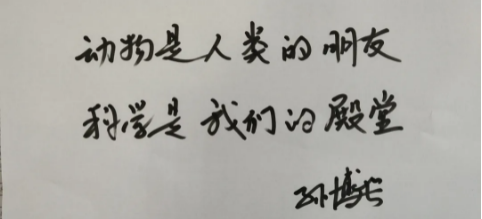 动物是人类的朋友
科学是我们的殿堂
孙博